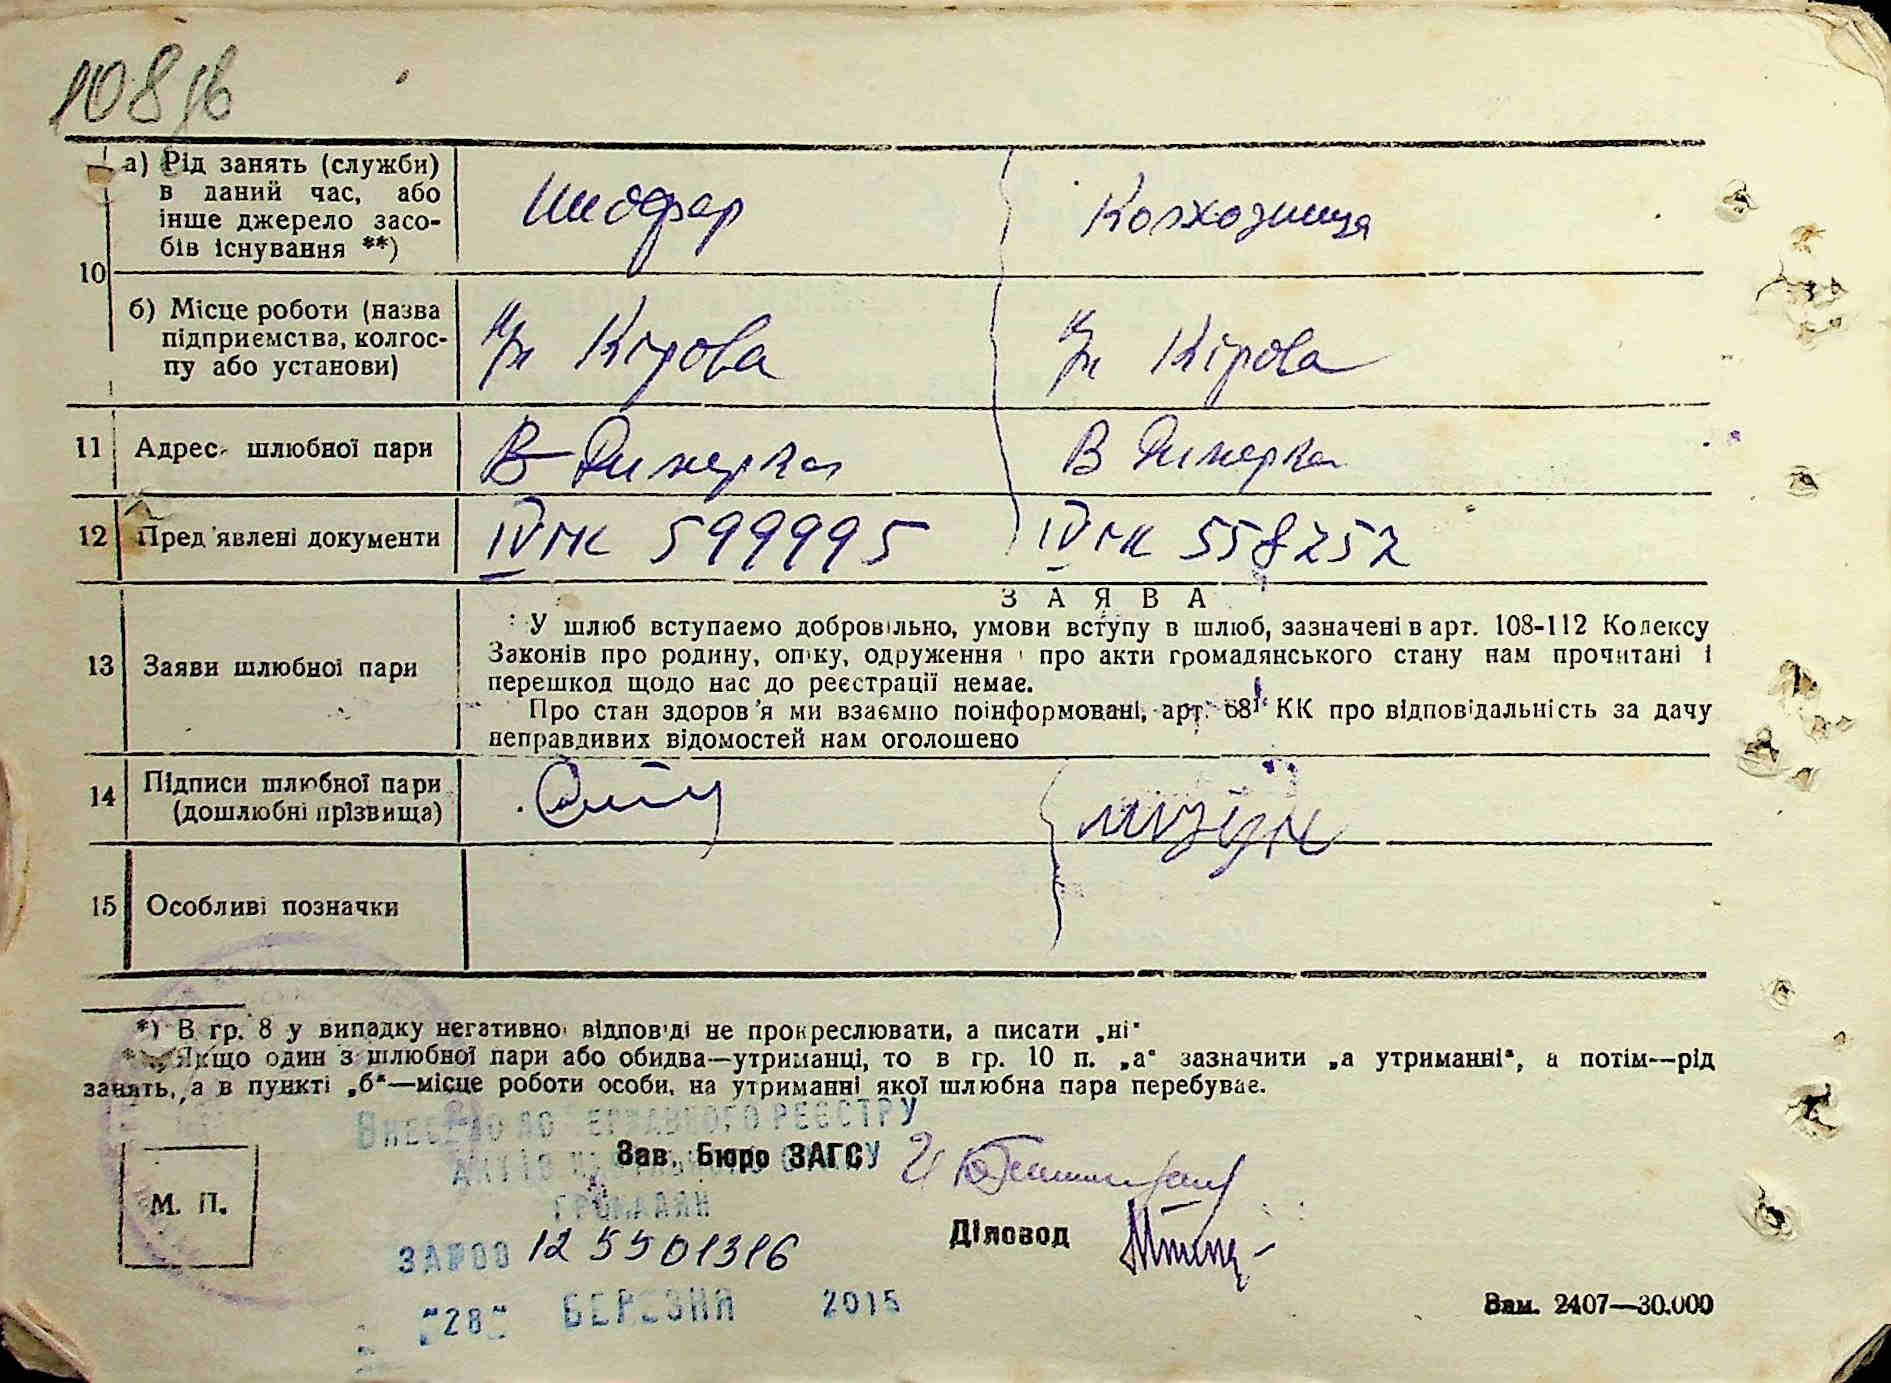 108 зв
а) Рід занять (служби)
в даний час, або
інше джерело засо-
бів існування **)
Шофер
Колхозница
10
б) Місце роботи (назва
підприємства, колгос-
пу або установи)
к/г Кірова
к/г Кірова
11 Адрес шлюбної пари
В Димерка
В Димерка
12 Пред'явлені документи
IV МК 599995
IV МК 558252
ЗАЯВА
13 Заяви шлюбної пари
У шлюб вступаємо добровільно, умови вступу в шлюб, зазначені в арт. 108-112 Кодексу
Законів про родину, опіку, одруження і про акти громадянського стану нам прочитані і
перешкод щодо нас до реєстрації немає.
Про стан здоров'я ми взаємно поінформовані, арт. 68¹ КК про відповідальність за дачу
неправдивих відомостей нам оголошено
14 Підписи шлюбної пари
(дошлюбні прізвища)
15 Особливі позначки
*) В гр. 8 у випадку негативної відповіді не прокреслювати, а писати „ні"
**) Якщо один з шлюбної пари або обидва—утриманці, то в гр. 10 п. „а" зазначити „а утриманні", а потім—рід
занять, а в пункті „б"—місце роботи особи, на утриманні якої шлюбна пара перебуває.
Внесено до Державного реєстру
актів цивільного стану
громадян
Зав. Бюро ЗАГСУ
М. П.
Діловод
ЗА №00 125501316
"28" БЕРЕЗНЯ 2015
Зам. 2407—30.000